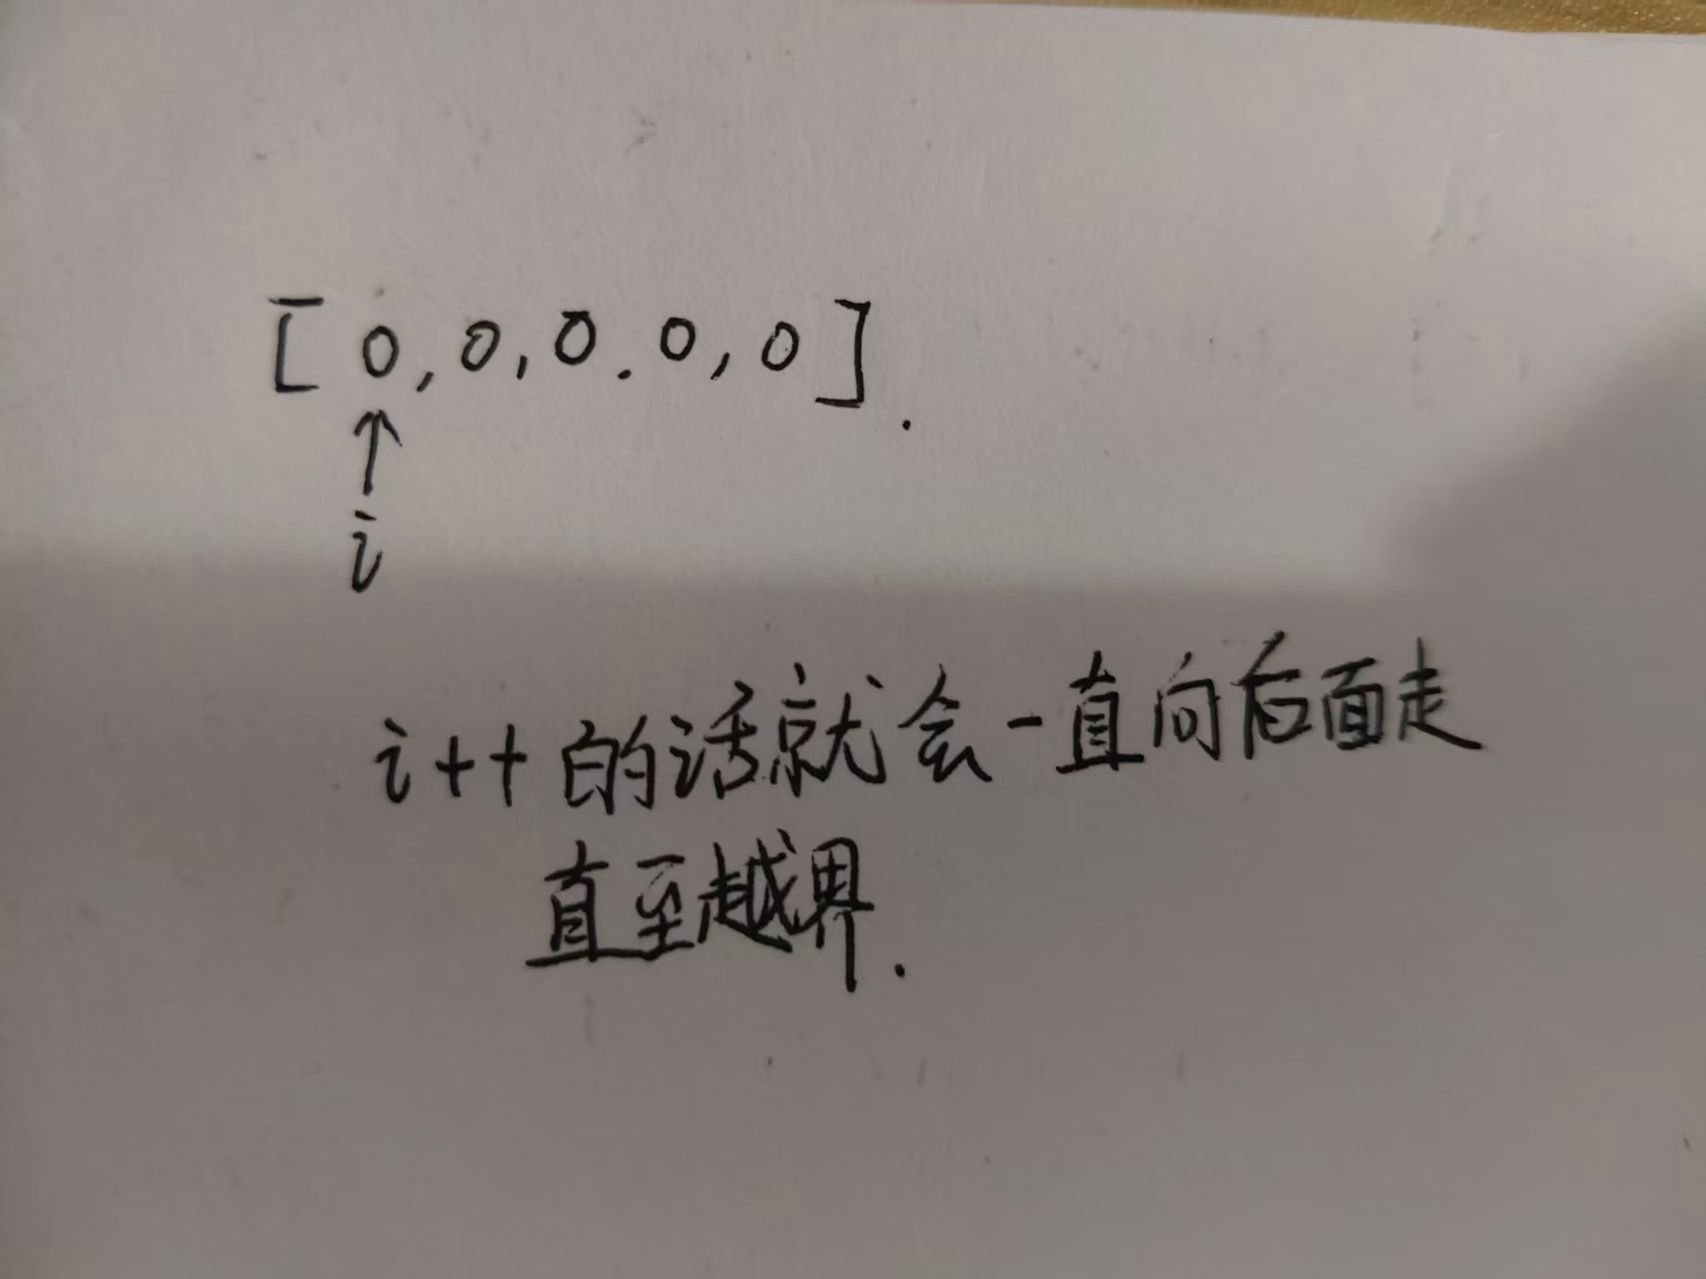 [0,0,0.0,0].
↑
i
i++的话就会一直向后面走
直至越界.